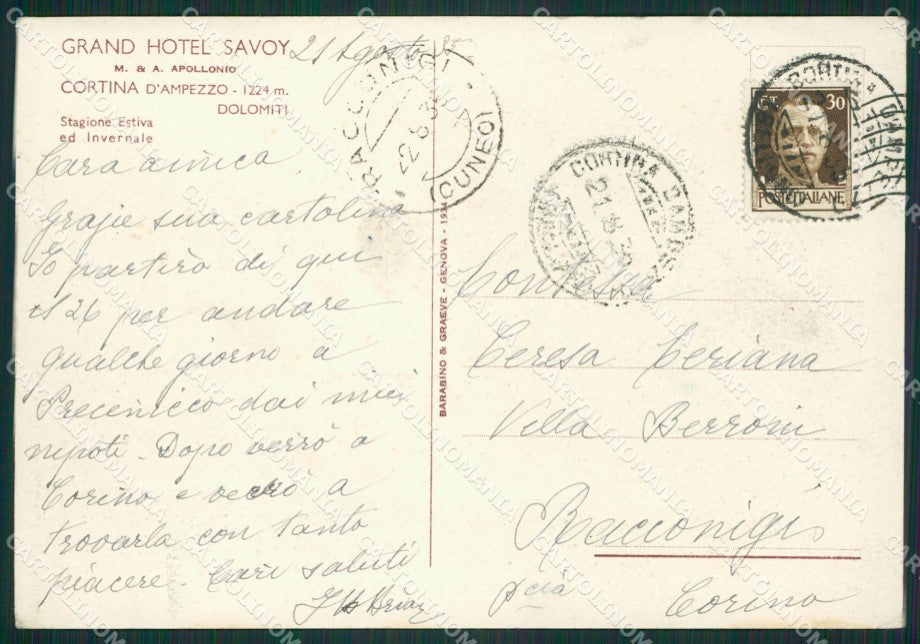 GRAND HOTEL SAVOY
M. & A. APOLLONIO
CORTINA D'AMPEZZO - 1224 m.
DOLOMITI
Stagione Estiva
ed Invernale
21 Agosto 35
Cara amica
Grazie sua cartolina
Io partirò di qui
il 26 per andare
qualche giorno a
Precenicco dai miei
nipoti. Dopo verrò a
Torino e vedrò a
trovarla con tanto
piacere. Cari saluti
BARABINO & GRAEVE - GENOVA - 1934
RACCONIGI
(CUNEO)
23 8 35
CORTINA D'AMPEZZO
21 8 35
CT. 30
POSTE ITALIANE
Contessa
Teresa Ceriana
Villa Berroni
Racconigi
pcia Torino
CARTOLINOMANIA